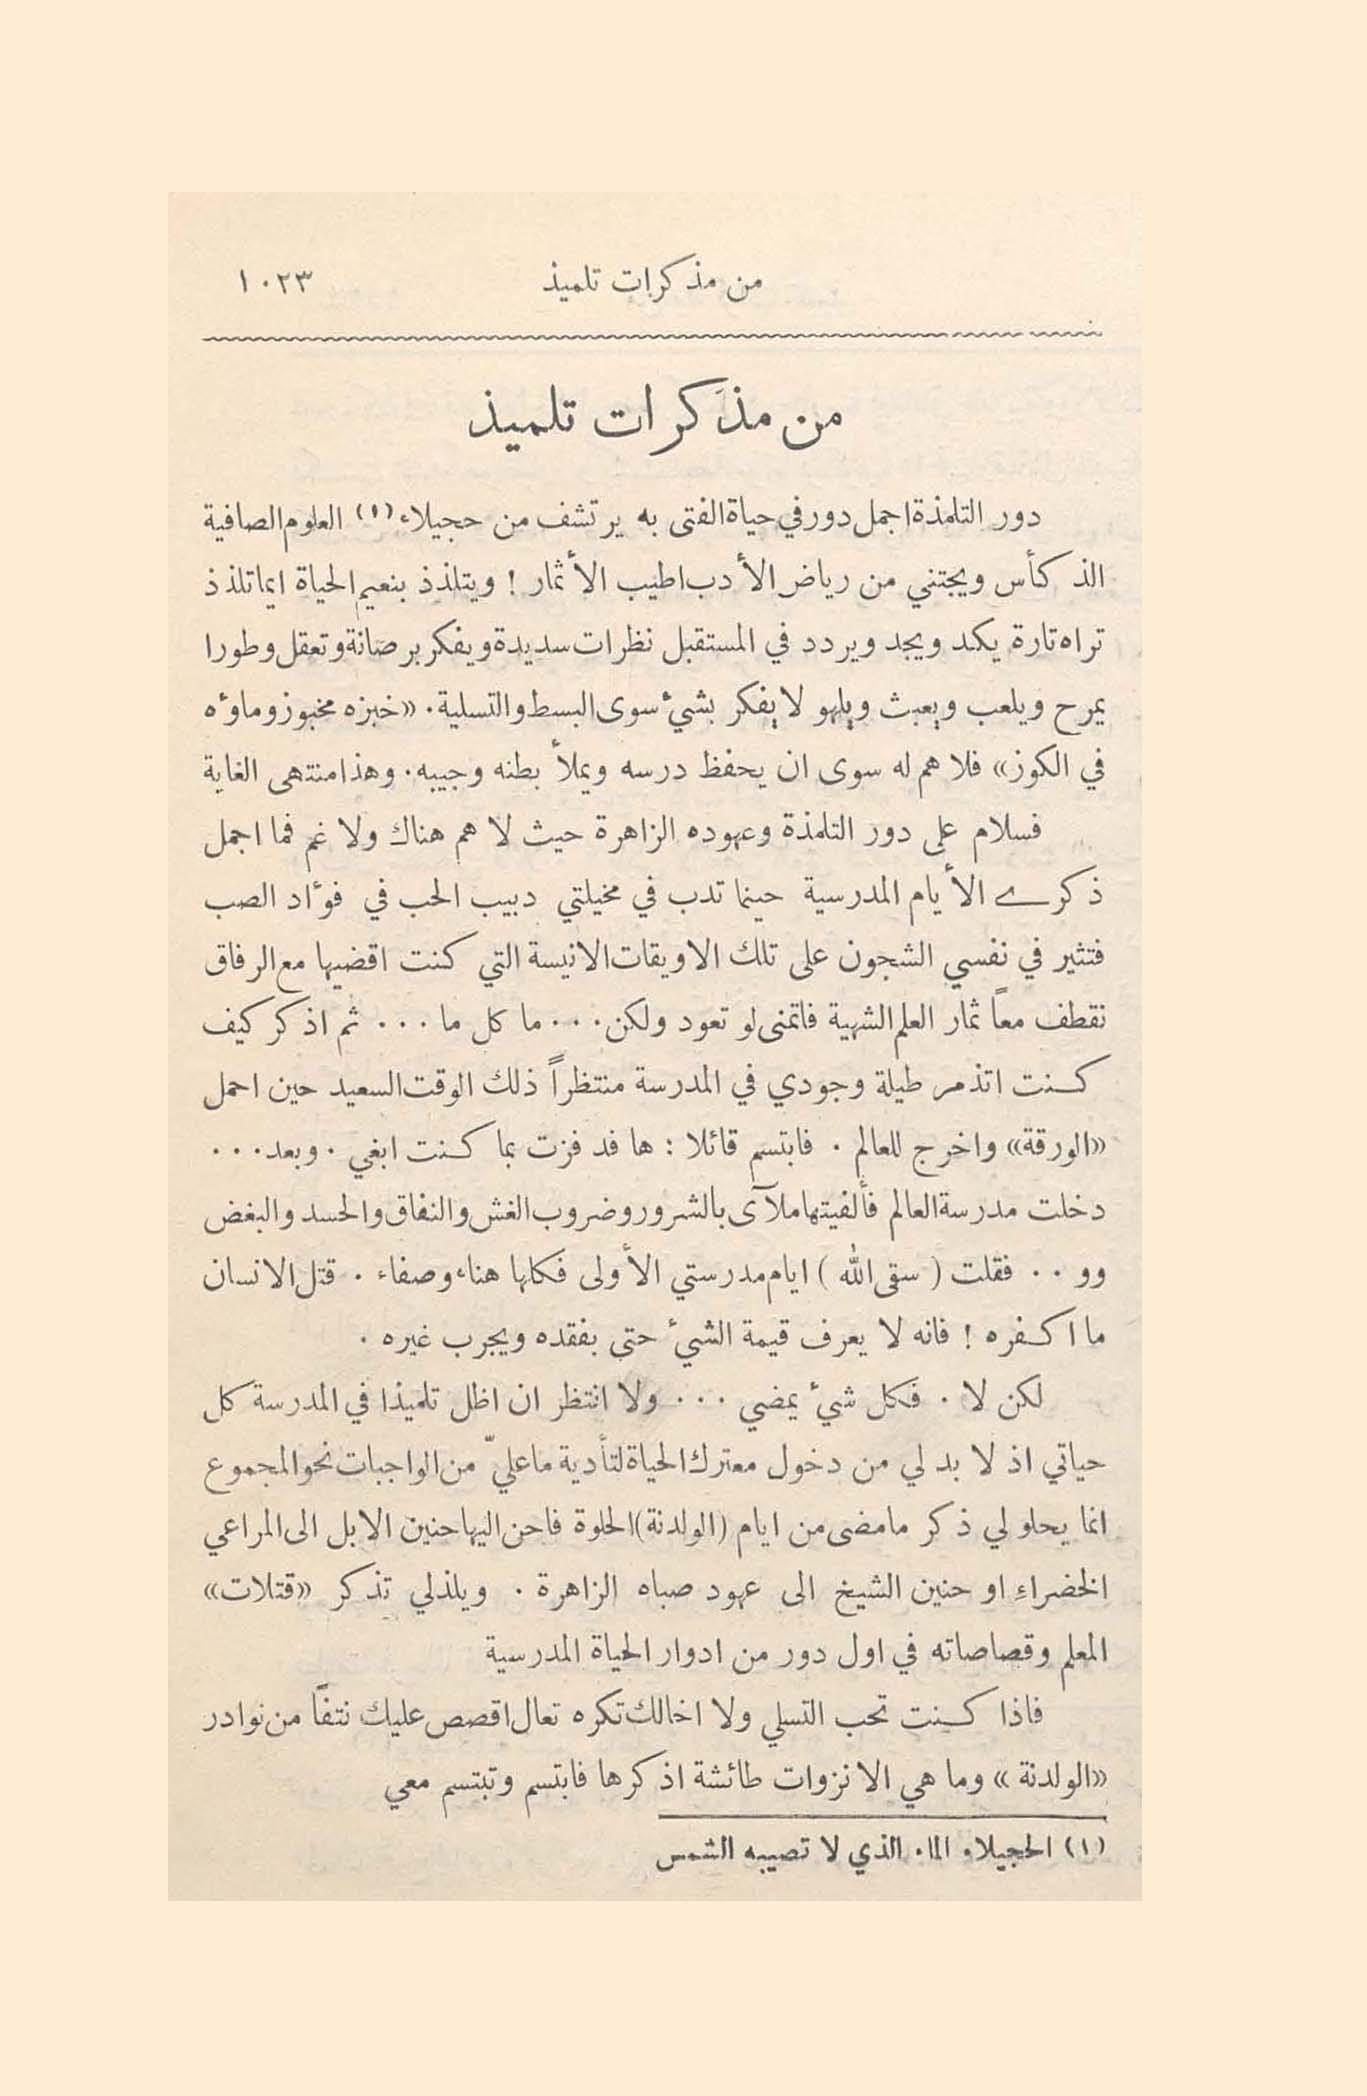 من مذكرات تلميذ ١٠٢٣
من مذكرات تلميذ
دور التلمذة اجمل دور في حياة الفتى به يرتشف من حجيلاء (١) العلوم الصافية
الذ كأس ويجتني من رياض الأدب اطيب الأثمار ! ويتلذذ بنعيم الحياة ايما تلذذ
تراه تارة يكد ويجد ويردد في المستقبل نظرات سديدة ويفكر برصانة وتعقل وطورا
يمرح ويلعب ويعبث ويلهو لا يفكر بشيءٔ سوى البسط والتسلية . «خبزه مخبوز وماؤه
في الكوز» فلا هم له سوى ان يحفظ درسه ويملأ بطنه وجيبه . وهذا منتهى الغاية
فسلام على دور التلمذة وعهوده الزاهرة حيث لا هم هناك ولا غم فما اجمل
ذكرى الأيام المدرسية حينما تدب في مخيلتي دبيب الحب في فؤاد الصب
فتثير في نفسي الشجون على تلك الاويقات الانيسة التي كنت اقضيها مع الرفاق
نقطف معاً ثمار العلم الشهية فاتمنى لو تعود ولكن ... ما كل ما ... ثم اذكر كيف
كنت اتذمر طيلة وجودي في المدرسة منتظراً ذلك الوقت السعيد حين احمل
«الورقة» واخرج للعالم . فابتسم قائلا : ها قد فزت بما كنت ابغي . وبعد ...
دخلت مدرسة العالم فألفيتها ملآى بالشرور وضروب الغش والنفاق والحسد والبغض
وو .. فقلت ( سقى الله ) ايام مدرستي الأولى فكلها هناء وصفاء . قتل الانسان
ما اكفره ! فانه لا يعرف قيمة الشيءٔ حتى بفقده ويجرب غيره .
لكن لا . فكل شيءٔ يمضي ... ولا انتظر ان اظل تلميذا في المدرسة كل
حياتي اذ لا بد لي من دخول معترك الحياة لتأدية ما عليّ من الواجبات نحو المجموع
انما يحلو لي ذكر ما مضى من ايام (الولدنة) الحلوة فاحن اليها حنين الابل الى المراعي
الخضراءِ او حنين الشيخ الى عهود صباه الزاهرة . ويلذلي تذكر «قتلات»
المعلم وقصاصاته في اول دور من ادوار الحياة المدرسية
فاذا كنت تحب التسلي ولا اخالك تكره تعال اقصص عليك نتفًا من نوادر
«الولدنة» وما هي الا نزوات طائشة اذكرها فابتسم وتبتسم معي
(١) الحجيلاء الماء الذي لا تصيبه الشمس